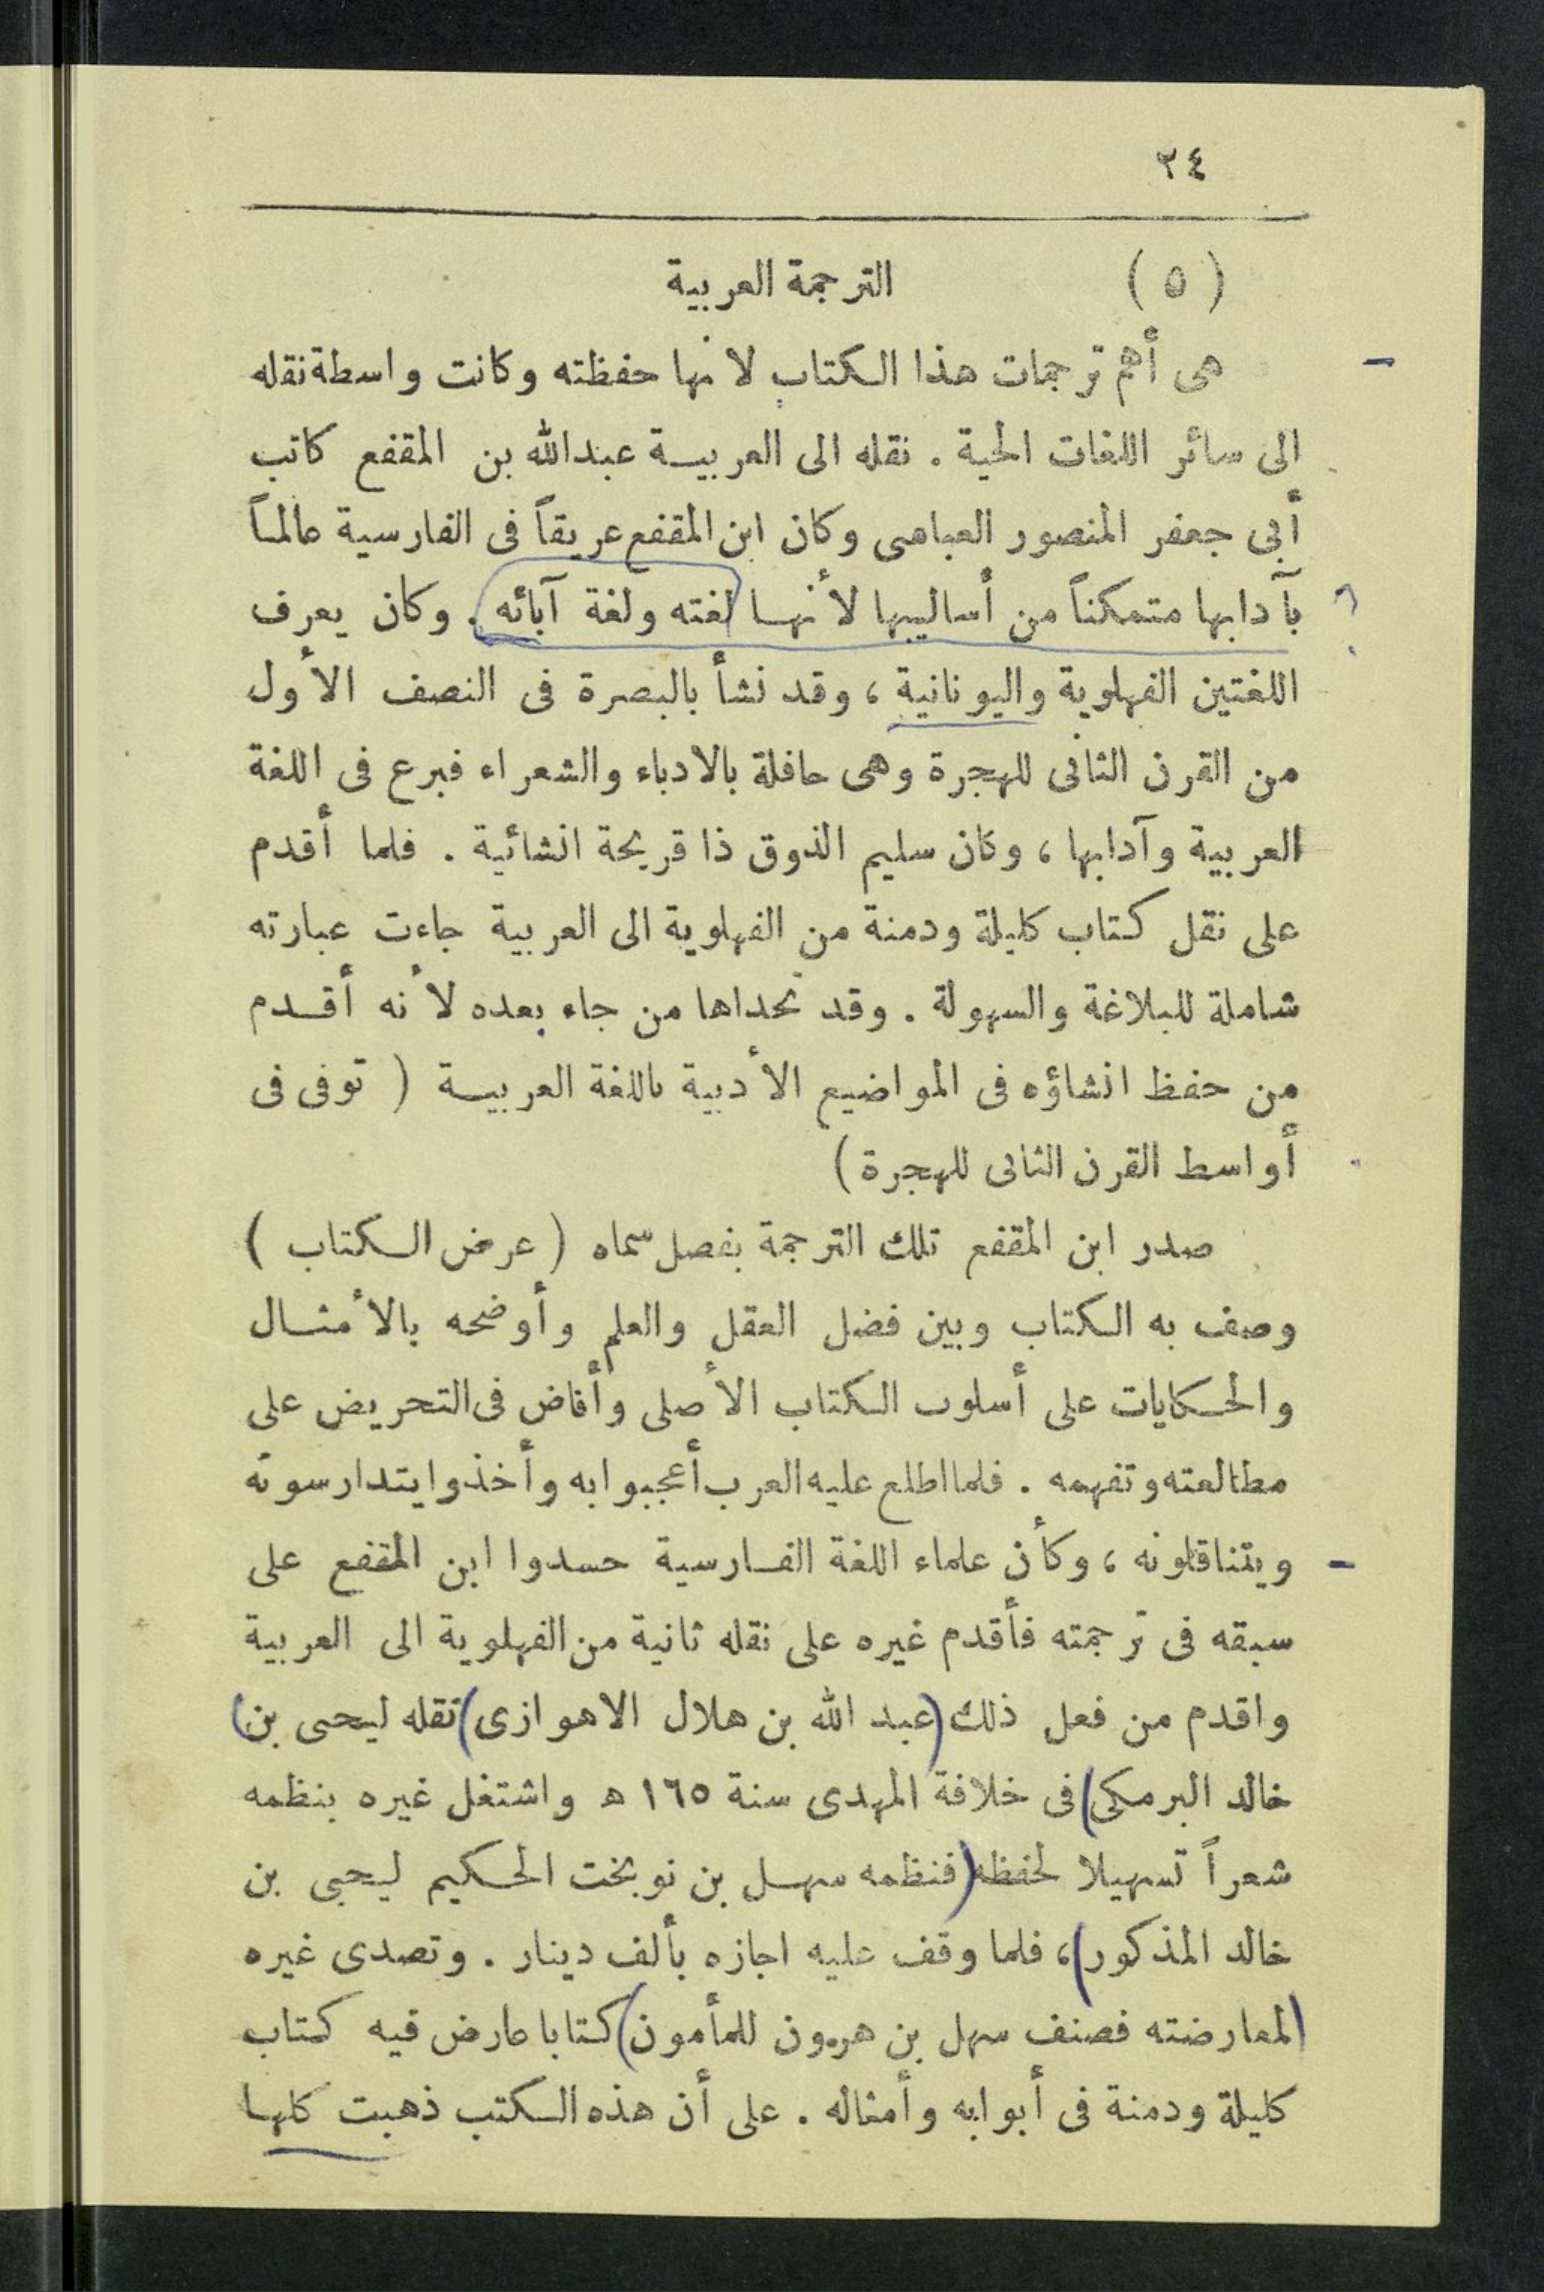 ٢٤
(٥) الترجمة العربية
هى أهم ترجمات هذا الكتاب لانها حفظته وكانت واسطة نقله
الى سائر اللغات الحية . نقله الى العربية عبدالله بن المقفع كاتب
أبى جعفر المنصور العباسى وكان ابن المقفع عريقاً فى الفارسية عالماً
بآدابها متمكناً من أساليبها لأنها لغته ولغة آبائه . وكان يعرف
اللغتين الفهلوية واليونانية ، وقد نشأ بالبصرة فى النصف الأول
من القرن الثانى للهجرة وهى حافلة بالادباء والشعراء فبرع فى اللغة
العربية وآدابها ، وكان سليم الذوق ذا قريحة انشائية . فلما أقدم
على نقل كتاب كليلة ودمنة من الفهلوية الى العربية جاءت عبارته
شاملة للبلاغة والسهولة . وقد تحداها من جاء بعده لأنه أقدم
من حفظ انشاؤه فى المواضيع الأدبية باللغة العربية ( توفى فى
أواسط القرن الثانى للهجرة )
صدر ابن المقفع تلك الترجمة بفصل سماه ( عرض الكتاب )
وصف به الكتاب وبين فضل العقل والعلم وأوضحه بالأمثال
والحكايات على أسلوب الكتاب الأصلى وأفاض فى التحريض على
مطالعته وتفهمه . فلما اطلع عليه العرب أعجبوا به وأخذوا يتدارسونه
ويتناقلونه ، وكأن علماء اللغة الفارسية حسدوا ابن المقفع على
سبقه فى ترجمته فأقدم غيره على نقله ثانية من الفهلوية الى العربية
واقدم من فعل ذلك (عبد الله بن هلال الاهوازى) نقله ليحيى بن)
خالد البرمكى) فى خلافة المهدى سنة ١٦٥ ه واشتغل غيره بنظمه
شعراً تسهيلا لحفظه (فنظمه سهل بن نوبخت الحكيم ليحيى بن
خالد المذكور) ، فلما وقف عليه اجازه بألف دينار . وتصدى غيره
(لمعارضته فصنف سهل بن هرون للمأمون) كتابا عارض فيه كتاب
كليلة ودمنة فى أبوابه وأمثاله . على أن هذه الكتب ذهبت كلها